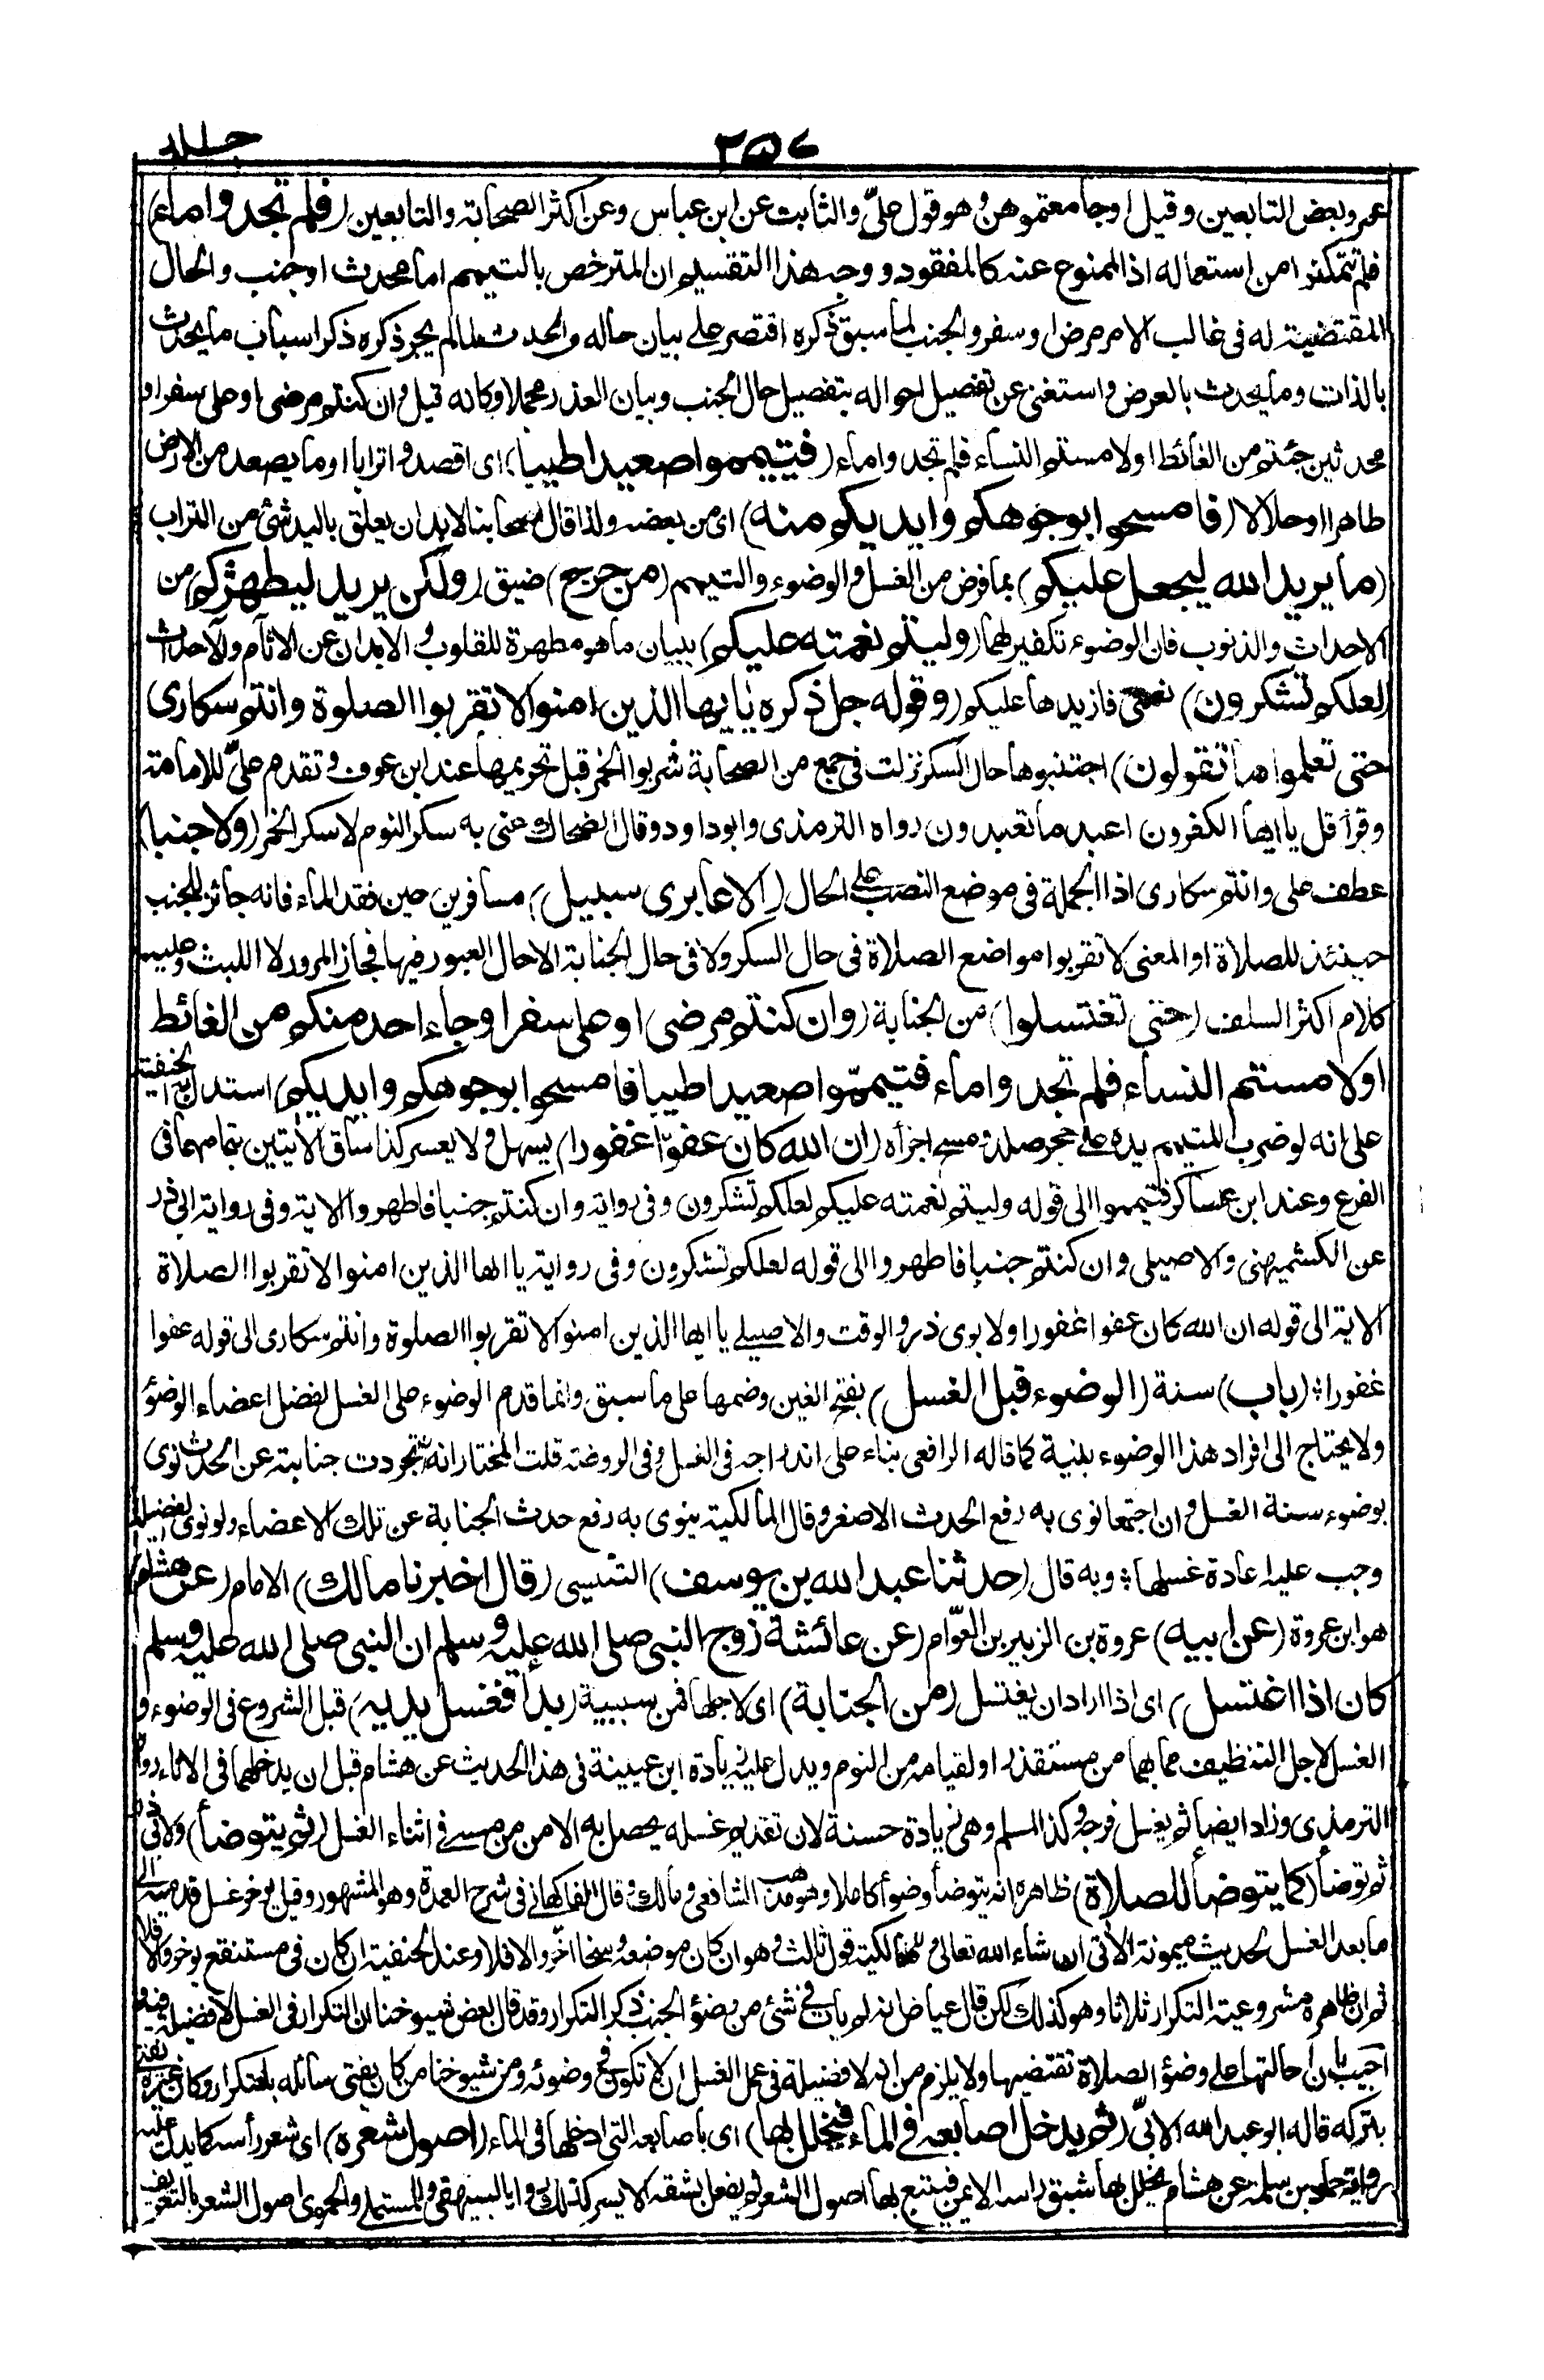 ٢٥٤ جلد ١
عمر وبعض التابعين وقيل اوجامعتموهن وهو قول علىّ والثابت عن ابن عباس وعن اكثر الصحابة والتابعين (فلم تجدوا ماء)
فلم تتمكنوا من استعماله اذ الممنوع عنه كالمفقود ووجه هذا التقسيم ان المترخص بالتيمم اما محدث او جنب والحال
المقتضية له فى غالب الامر مرض او سفر والجنب لما سبق ذكره اقتصر على بيان حاله والمحدث لما لم يجر ذكره ذكر اسباب ما يحدث
بالذات وما يحدث بالعرض واستغنى عن تفصيل احواله بتفصيل حال الجنب وبيان العذر مجملا وكانه قيل وان كنتم مرضى او على سفر او
محدثين جئتم من الغائط او لامستم النساء فلم تجدوا ماء (فتيمموا صعيدا طيبا) اى اقصدوا ترابا او ما يصعد من الارض
طاهرا او حلالا (فامسحوا بوجوهكم وايديكم منه) اى من بعضه ولذا قال اصحابنا لابد ان يعلق باليد شئ من التراب
(ما يريد الله ليجعل عليكم) بما فرض من الغسل والوضوء والتيمم (من حرج) ضيق (ولكن يريد ليطهركم) من
الاحداث والذنوب فان الوضوء تكفير لها (وليتم نعمته عليكم) ببيان ما هو مطهرة للقلوب والابدان عن الاثام والاحداث
(لعلكم تشكرون) نعمتى فازيدها عليكم (وقوله جل ذكره يايها الذين امنوا لا تقربوا الصلوة وانتم سكارى
حتى تعلموا ما تقولون) اجتنبوها حال السكر نزلت فى جمع من الصحابة شربوا الخمر قبل تحريمها عند ابن عوف وتقدم علىّ للامامة
وقرأ قل يا ايها الكفرون اعبد ما تعبدون رواه الترمذى وابو داود وقال الضحاك عنى به سكر النوم لا سكر الخمر (ولا جنبا)
عطف على وانتم سكارى اذ الجملة فى موضع النصب على الحال (الا عابرى سبيل) مسافرين حين فقد الماء فانه جائز للجنب
حينئذ للصلاة او المعنى لا تقربوا مواضع الصلاة فى حال السكر ولا فى حال الجنابة الا حال العبور فيها فجاز المرور لا اللبث وعليه
كلام اكثر السلف (حتى تغتسلوا) من الجنابة (وان كنتم مرضى او على سفر او جاء احد منكم من الغائط
او لامستم النساء فلم تجدوا ماء فتيمموا صعيدا طيبا فامسحوا بوجوهكم وايديكم) استدل به الحنفية
على انه لو ضرب المتيمم يده على حجر صلد ومسح اجزأه (ان الله كان عفوّا غفورا) يسهل ولا يعسر كذا ساق الآيتين بتمامهما فى
الفرع وعند ابن عساكر فتيمموا الى قوله وليتم نعمته عليكم لعلكم تشكرون وفى رواية وان كنتم جنبا فاطهروا الاية وفى رواية ابى ذر
عن الكشميهنى والاصيلى وان كنتم جنبا فاطهروا الى قوله لعلكم تشكرون وفى رواية يا ايها الذين امنوا لا تقربوا الصلاة
الاية الى قوله ان الله كان عفوا غفورا ولابوى ذر والوقت والاصيلى يا ايها الذين امنوا لا تقربوا الصلوة وانتم سكارى الى قوله عفوا
غفورا (باب) سنة (الوضوء قبل الغسل) بفتح الغين وضمها على ما سبق وانما قدم الوضوء على الغسل لفضل اعضاء الوضوء
ولا يحتاج الى افراد هذا الوضوء بنية كما قاله الرافعى بناء على اندراجه فى الغسل وفى الروضة قلت المختار انه ان تجردت جنابته عن الحدث نوى
بوضوء سنة الغسل وان اجتمعا نوى به رفع الحدث الاصغر وقال المالكية ينوى به رفع حدث الجنابة عن تلك الاعضاء ولو نوى الفضيلة
وجب عليه اعادة غسلها وبه قال (حدثنا عبد الله بن يوسف) التنيسى (قال اخبرنا مالك) الامام (عن هشام)
هو ابن عروة (عن ابيه) عروة بن الزبير بن العوّام (عن عائشة زوج النبى صلى الله عليه وسلم ان النبى صلى الله عليه وسلم
كان اذا اغتسل) اى اذا اراد ان يغتسل (من الجنابة) اى لاجلها فمن سببية (بدأ فغسل يديه) قبل الشروع فى الوضوء و
الغسل لاجل التنظيف مما بهما من مستقذر او لقيامه من النوم ويدل عليه زيادة ابن عيينة فى هذا الحديث عن هشام قبل ان يدخلهما فى الاناء رواه
الترمذى وزاد ايضا ثم يغسل فرجه وكذا لمسلم وهى زيادة حسنة لان تقديم غسله يحصل به الامن من مسه فى اثناء الغسل (ثم يتوضأ) ولابى ذر
ثم توضأ (كما يتوضأ للصلاة) ظاهره انه يتوضأ وضوءا كاملا وهو مذهب الشافعى ومالك وقال الفاكهانى فى شرح العمدة وهو المشهور وقيل يؤخر غسل قدميه الى
ما بعد الغسل لحديث ميمونة الآتى ان شاء الله تعالى وللمالكية قول ثالث وهو ان كان موضعه وسخا اخّر والا فلا وعند الحنفية ان كان فى مستنقع يؤخر والا فلا
ثم ان ظاهره مشروعية التكرار ثلاثا وهو كذلك لكن قال عياض انه لم يأت فى شئ من وضوء الجنب ذكر التكرار وقد قال بعض شيوخنا ان التكرار فى الغسل لا فضيلة فيه و
اجيب بان احالتها على وضوء الصلاة تقتضيها ولا يلزم من انه لا فضيلة فى عمل الغسل ان لا تكون فى وضوئه ومن شيوخنا من كان يفتى سائله بالتكرار وكان غيره يفتى
بتركه قاله ابو عبد الله الابىّ (ثم يدخل اصابعه فى الماء فيخلل بها) اى باصابعه التى ادخلها فى الماء (اصول شعره) اى شعر رأسه كما يدل عليه
رواية حماد بن سلمة عن هشام يخلل بها شق راسه الايمن فيتبع بها اصول الشعر ثم يفعل بشقه الايسر كذلك رواه البيهقى وللمستملى والحموى اصول الشعر بالتعريف